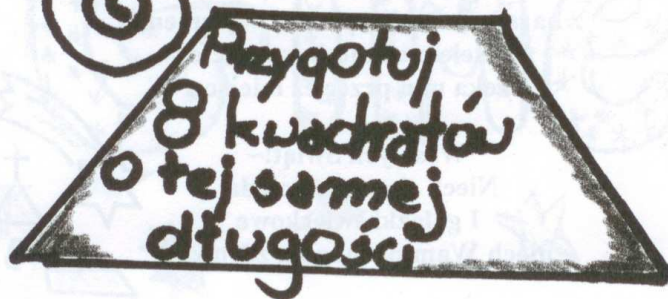 Przygotuj
8 kwadratów
o tej samej
długości